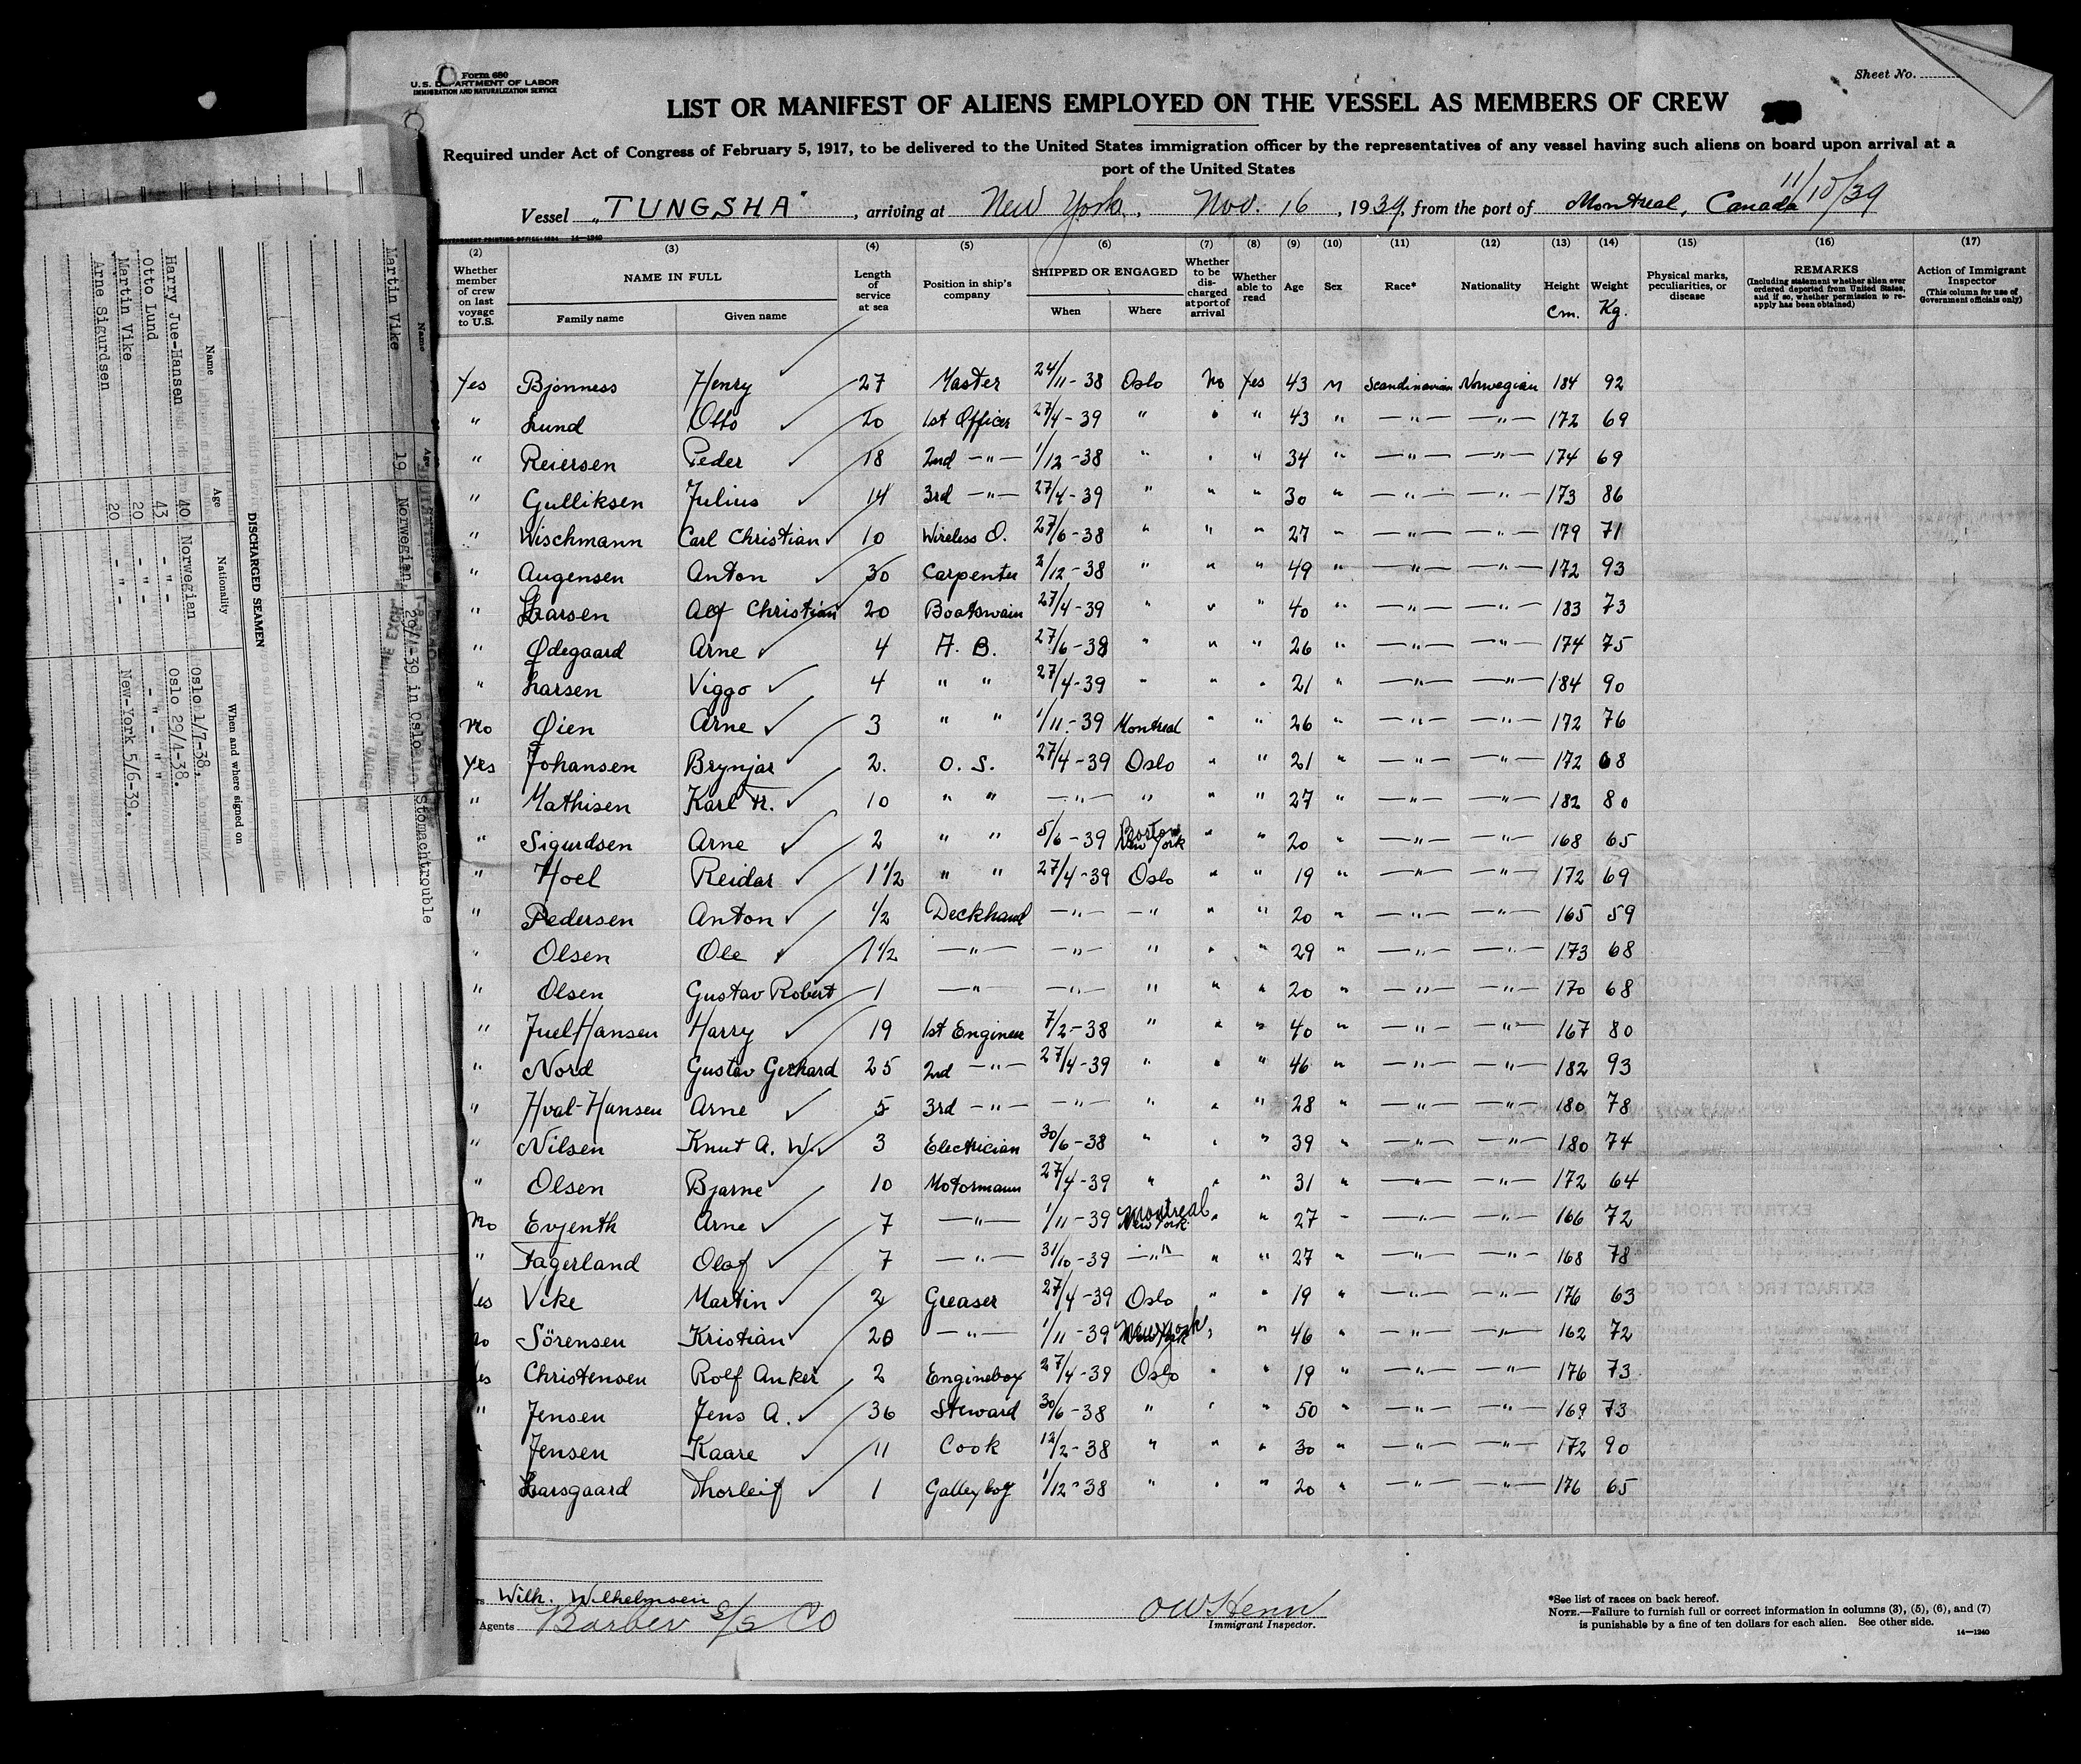 Form 680
U. S. DEPARTMENT OF LABOR
IMMIGRATION AND NATURALIZATION SERVICE
Sheet No.
LIST OR MANIFEST OF ALIENS EMPLOYED ON THE VESSEL AS MEMBERS OF CREW
Required under Act of Congress of February 5, 1917, to be delivered to the United States immigration officer by the representatives of any vessel having such aliens on board upon arrival at a
port of the United States
11/10/39
Vessel "TUNGSHA", arriving at New York, Nov. 16, 1939, from the port of Montreal, Canada
(2) (3) (4) (5) (6) (7) (8) (9) (10) (11) (12) (13) (14) (15) (16) (17)
Whether member of crew on last voyage to U.S. NAME IN FULL Family name Given name Length of service at sea Position in ship's company SHIPPED OR ENGAGED When Where Whether to be discharged at port of arrival Whether able to read Age Sex Race* Nationality Height Cm. Weight Kg. Physical marks, peculiarities, or disease REMARKS (Including statement whether alien ever ordered deported from United States, and if so, whether permission to reapply has been obtained) Action of Immigrant Inspector (This column for use of Government officials only)
Yes Bjönness Henry 27 Master 24/11-38 Oslo No Yes 43 M Scandinavian Norwegian 184 92
" Lund Otto 20 1st Officer 27/4-39 " " " 43 " —"— —"— 172 69
" Reiersen Peder 18 2nd —"— 1/12-38 " " " 34 " —"— —"— 174 69
" Gulliksen Julius 14 3rd —"— 27/4-39 " " " 30 " —"— —"— 173 86
" Wischmann Carl Christian 10 Wireless O. 27/6-38 " " " 27 " —"— —"— 179 71
" Augensen Anton 30 Carpenter 2/12-38 " " " 49 " —"— —"— 172 93
" Larsen Alf Christian 20 Boatswain 27/4-39 " " " 40 " —"— —"— 183 73
" Ødegaard Arne 4 A. B. 27/6-38 " " " 26 " —"— —"— 174 75
" Larsen Viggo 4 " " 27/4-39 " " " 21 " —"— —"— 184 90
No Øien Arne 3 " " 1/11-39 Montreal " " 26 " —"— —"— 172 76
Yes Johansen Brynjar 2. O. S. 27/4-39 Oslo " " 21 " —"— —"— 172 68
" Mathisen Karl Fr. 10 " " —"— " " " 27 " —"— —"— 182 80
" Sigurdsen Arne 2 " " 5/6-39 Boston New York " " 20 " —"— —"— 168 65
" Hoel Reidar 1 1/2 " " 27/4-39 Oslo " " 19 " —"— —"— 172 69
" Pedersen Anton 1/2 Deckhand —"— —"— " " 20 " —"— —"— 165 59
" Olsen Ole 1 1/2 —"— —"— " " " 29 " —"— —"— 173 68
" Olsen Gustav Robert 1 —"— —"— " " " 20 " —"— —"— 170 68
" Juel Hansen Harry 19 1st Engineer 7/2-38 " " " 40 " —"— —"— 167 80
" Nord Gustav Gerhard 25 2nd —"— 27/4-39 " " " 46 " —"— —"— 182 93
" Hval-Hansen Arne 5 3rd —"— —"— " " " 28 " —"— —"— 180 78
" Nilsen Knut A. W. 3 Electrician 30/6-38 " " " 39 " —"— —"— 180 74
" Olsen Bjarne 10 Motormann 27/4-39 " " " 31 " —"— —"— 172 64
No Evjenth Arne 7 —"— 1/11-39 Montreal New York " " 27 " —"— —"— 166 72
" Fagerland Olaf 7 —"— 31/10-39 —"— " " 27 " —"— —"— 168 78
Yes Vike Martin 2 Greaser 27/4-39 Oslo " " 19 " —"— —"— 176 63
No Sörensen Kristian 20 —"— 1/11-39 New York " " 46 " —"— —"— 162 72
Yes Christensen Rolf Anker 2 Engineboy 27/4-39 Oslo " " 19 " —"— —"— 176 73
" Jensen Jens A. 36 Steward 30/6-38 " " " 50 " —"— —"— 169 73
" Jensen Kaare 11 Cook 12/2-38 " " " 30 " —"— —"— 172 90
" Larsgaard Thorleif 1 Galleyboy 1/12-38 " " " 20 " —"— —"— 176 65
Wilh. Wilhelmsen
Agents Barber S/S Co
OW Henn
Immigrant Inspector.
*See list of races on back hereof.
NOTE.—Failure to furnish full or correct information in columns (3), (5), (6), and (7)
is punishable by a fine of ten dollars for each alien. See other side.
14—1240
DISCHARGED SEAMEN
Name Age Nationality When and where signed on
Harry Jue-Hansen 40 Norwegian Oslo 1/7-38.
Otto Lund 43 - " - Oslo 29/4-38.
Martin Vike 20 - " - - " - "
Arne Sigurdsen 20 - " - New-York 5/6-39.
Name Age
Martin Vike 19 Norwegian, 29/4-39 in Oslo Stomachtrouble